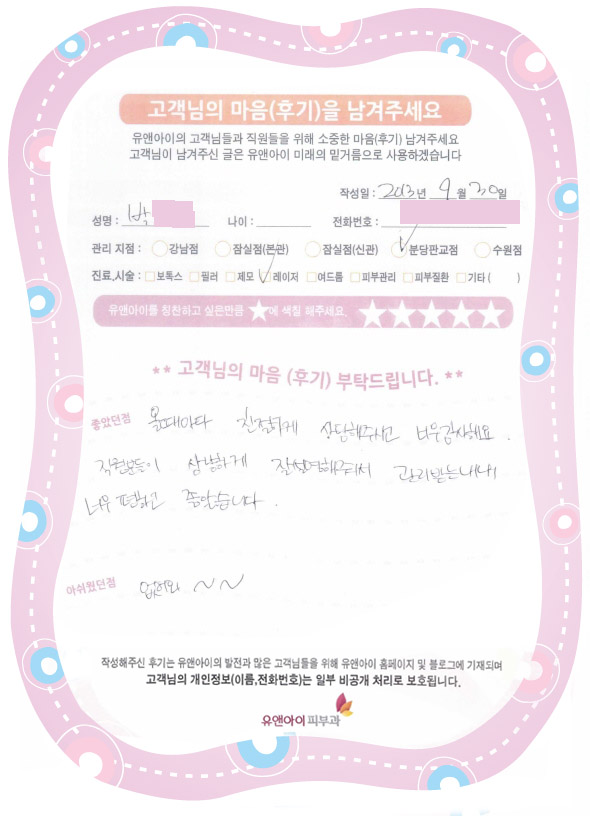 고객님의 마음(후기)을 남겨주세요
유앤아이의 고객님들과 직원들을 위해 소중한 마음(후기) 남겨주세요
고객님이 남겨주신 글은 유앤아이 미래의 밑거름으로 사용하겠습니다
작성일 : 2013년 9월 30일
성명 : 박 나이 : 전화번호 :
관리 지점 : 강남점 잠실점(본관) 잠실점(신관) 분당판교점 수원점
진료,시술 : 보톡스 필러 제모 레이저 여드름 피부관리 피부질환 기타 ( )
유앤아이를 칭찬하고 싶은만큼 ★에 색칠 해주세요. ★★★★★
** 고객님의 마음 (후기) 부탁드립니다. **
좋았던점 올때마다 친절하게 상담해주시고 너무감사해요.
직원분들이 상냥하게 잘설명해주셔서 관리받는내내
너무 편하고 좋았습니다.
아쉬웠던점 없어요 ~~
작성해주신 후기는 유앤아이의 발전과 많은 고객님들을 위해 유앤아이 홈페이지 및 블로그에 기재되며
고객님의 개인정보(이름,전화번호)는 일부 비공개 처리로 보호됩니다.
유앤아이 피부과